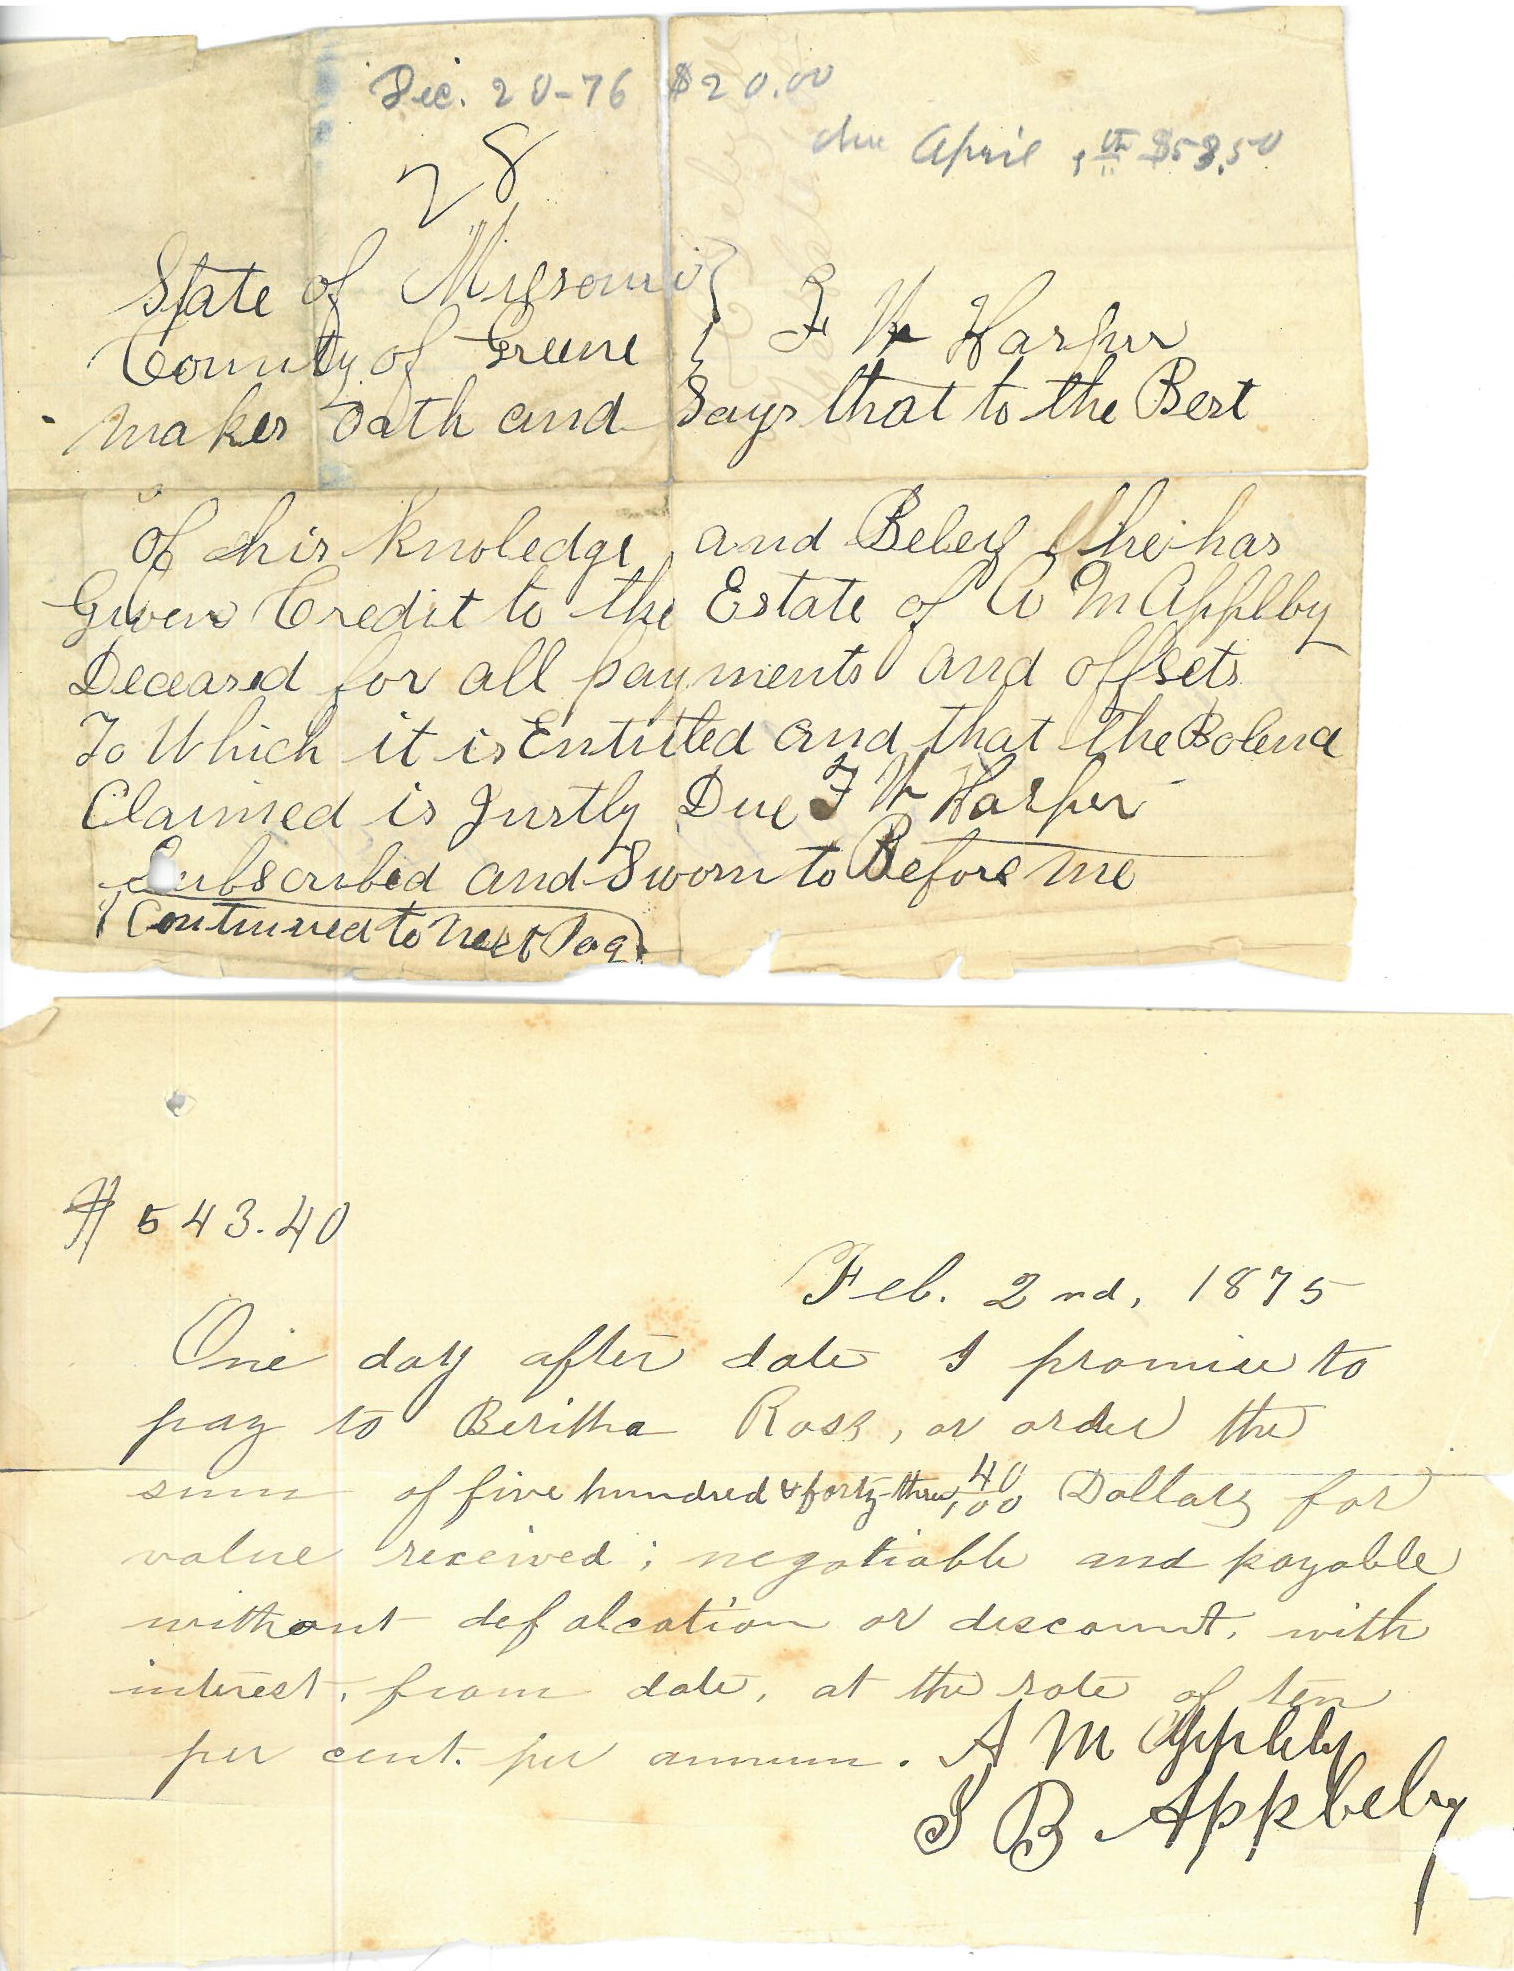 Dec. 20-76 $20.00
due April $53.50
28
State of Missouri } F W Harper
County of Greene }
makes oath and Says that to the Best
of his knoledge and Beleif he has
Given Credit to the Estate of A M Appleby
Deceased for all payments and offsets
To Which it is Entitled and that the Bolence
Claimed is Justly Due F W Harper
Subscribed and Sworn to Before me
Continued to Next Page
$543.40
Feb. 2nd, 1875
One day after date I promise to
pay to Beritha Ross, or order the
sum of five hundred & forty-three 40/100 Dollars for
value received; negotiable and payable
without defalcation or discount, with
interest, from date, at the rate of ten
per cent. per annum. A M Appleby
S B Appleby